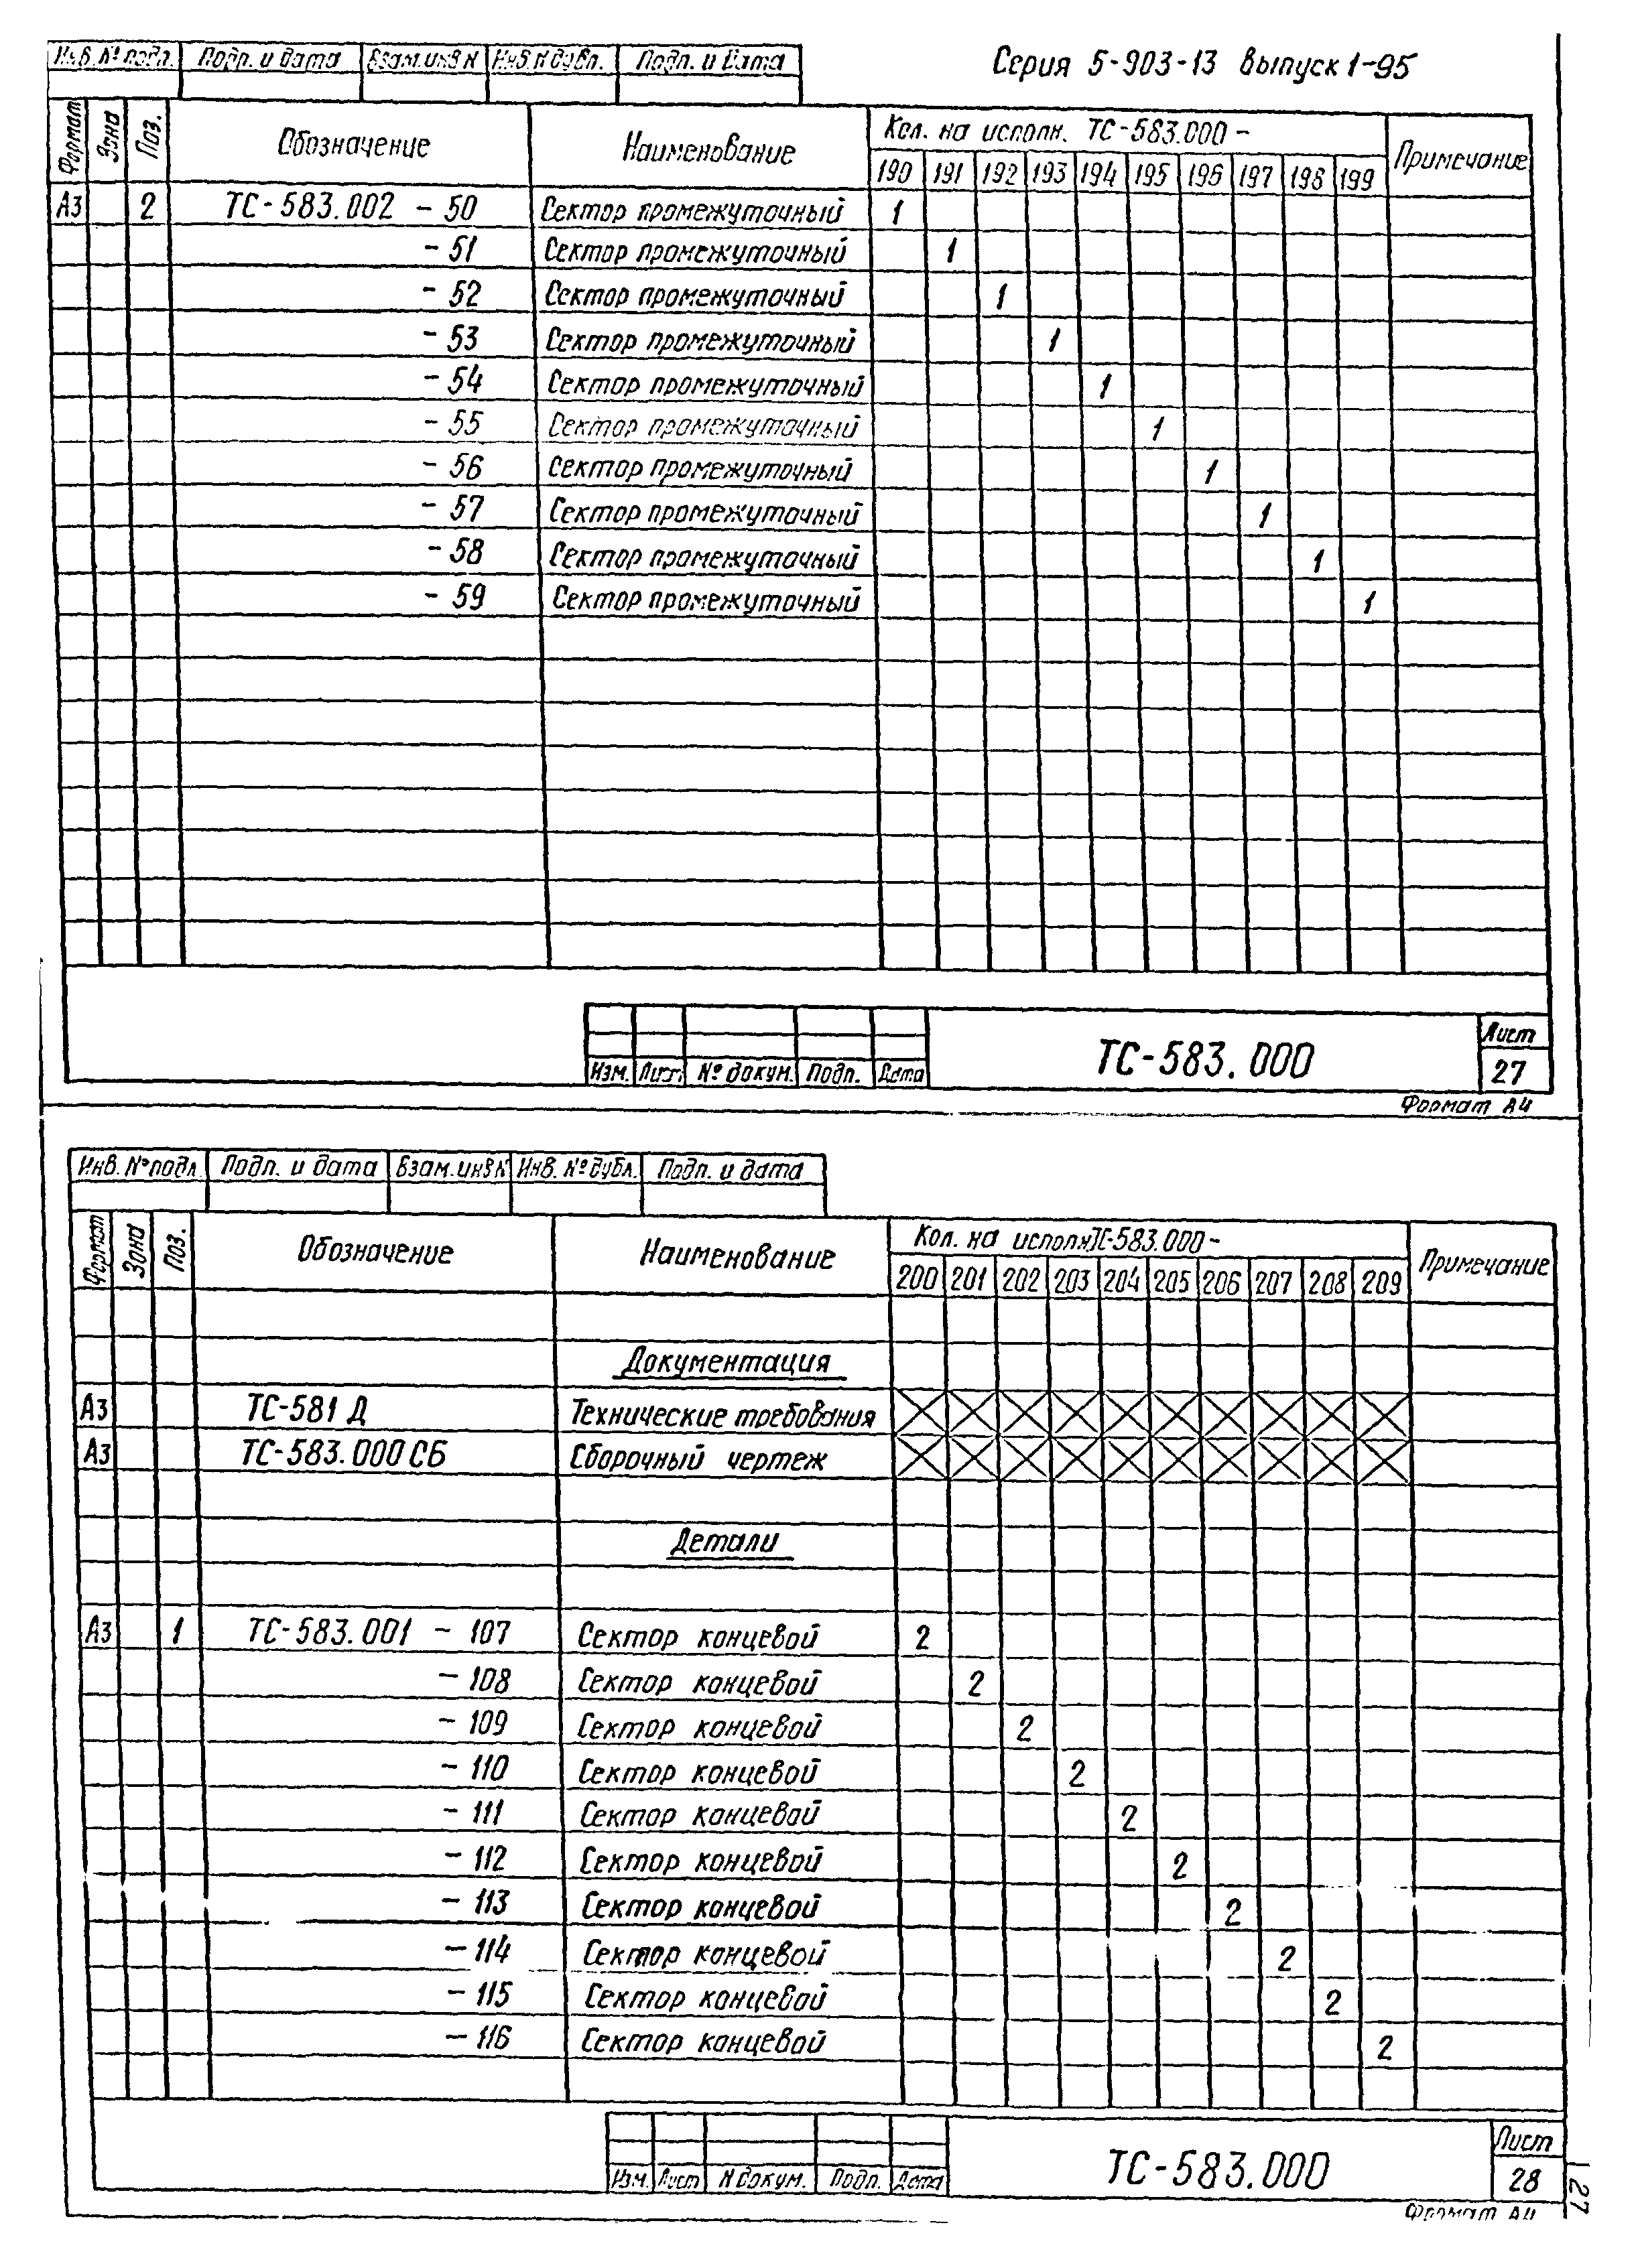 Серия 5-903-13 выпуск 1-95
Инв. № подл. Подп. и дата Взам.инв N Инв N дубл. Подп. и дата
Формат Зона Поз. Обозначение Наименование Кол. на исполн. ТС-583.000 - Примечание
190 191 192 193 194 195 196 197 198 199
А3 2 ТС-583.002 - 50 Сектор промежуточный 1
- 51 Сектор промежуточный 1
- 52 Сектор промежуточный 1
- 53 Сектор промежуточный 1
- 54 Сектор промежуточный 1
- 55 Сектор промежуточный 1
- 56 Сектор промежуточный 1
- 57 Сектор промежуточный 1
- 58 Сектор промежуточный 1
- 59 Сектор промежуточный 1
Изм. Лист № докум. Подп. Дата
ТС-583.000
Лист
27
Формат А4
Инв. № подл Подп. и дата Взам.инв N Инв. № дубл. Подп. и дата
Формат Зона Поз. Обозначение Наименование Кол. на исполн ТС-583.000 - Примечание
200 201 202 203 204 205 206 207 208 209
Документация
А3 ТС-581 Д Технические требования
А3 ТС-583.000 СБ Сборочный чертеж
Детали
А3 1 ТС-583.001 - 107 Сектор концевой 2
- 108 Сектор концевой 2
- 109 Сектор концевой 2
- 110 Сектор концевой 2
- 111 Сектор концевой 2
- 112 Сектор концевой 2
- 113 Сектор концевой 2
- 114 Сектор концевой 2
- 115 Сектор концевой 2
- 116 Сектор концевой 2
Изм. Лист N докум. Подп. Дата
ТС-583.000
Лист
28
Формат А4
27